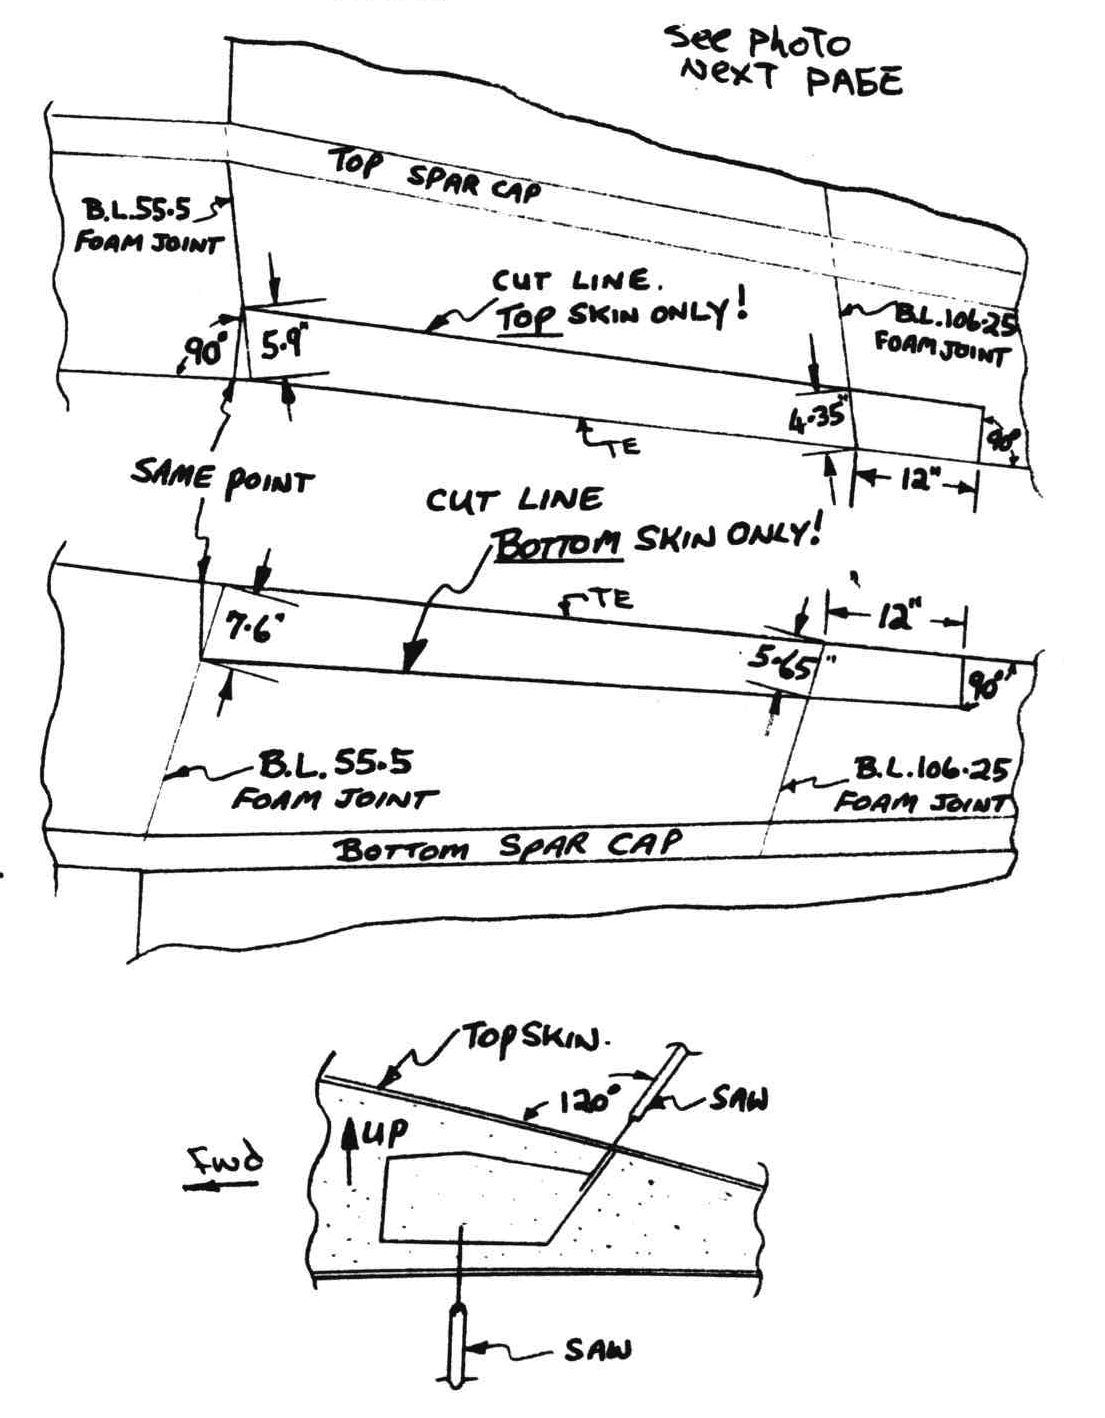 See PHOTO
NEXT PAGE
TOP SPAR CAP
B.L.55.5
FOAM JOINT
CUT LINE.
TOP SKIN ONLY!
B.L.106.25
FOAM JOINT
90°
5.9"
4.35"
90°
TE
12"
SAME POINT
CUT LINE
BOTTOM SKIN ONLY!
TE
12"
7.6"
5.65"
90°
B.L. 55.5
FOAM JOINT
B.L.106.25
FOAM JOINT
BOTTOM SPAR CAP
TOP SKIN.
120°
SAW
UP
Fwd
SAW